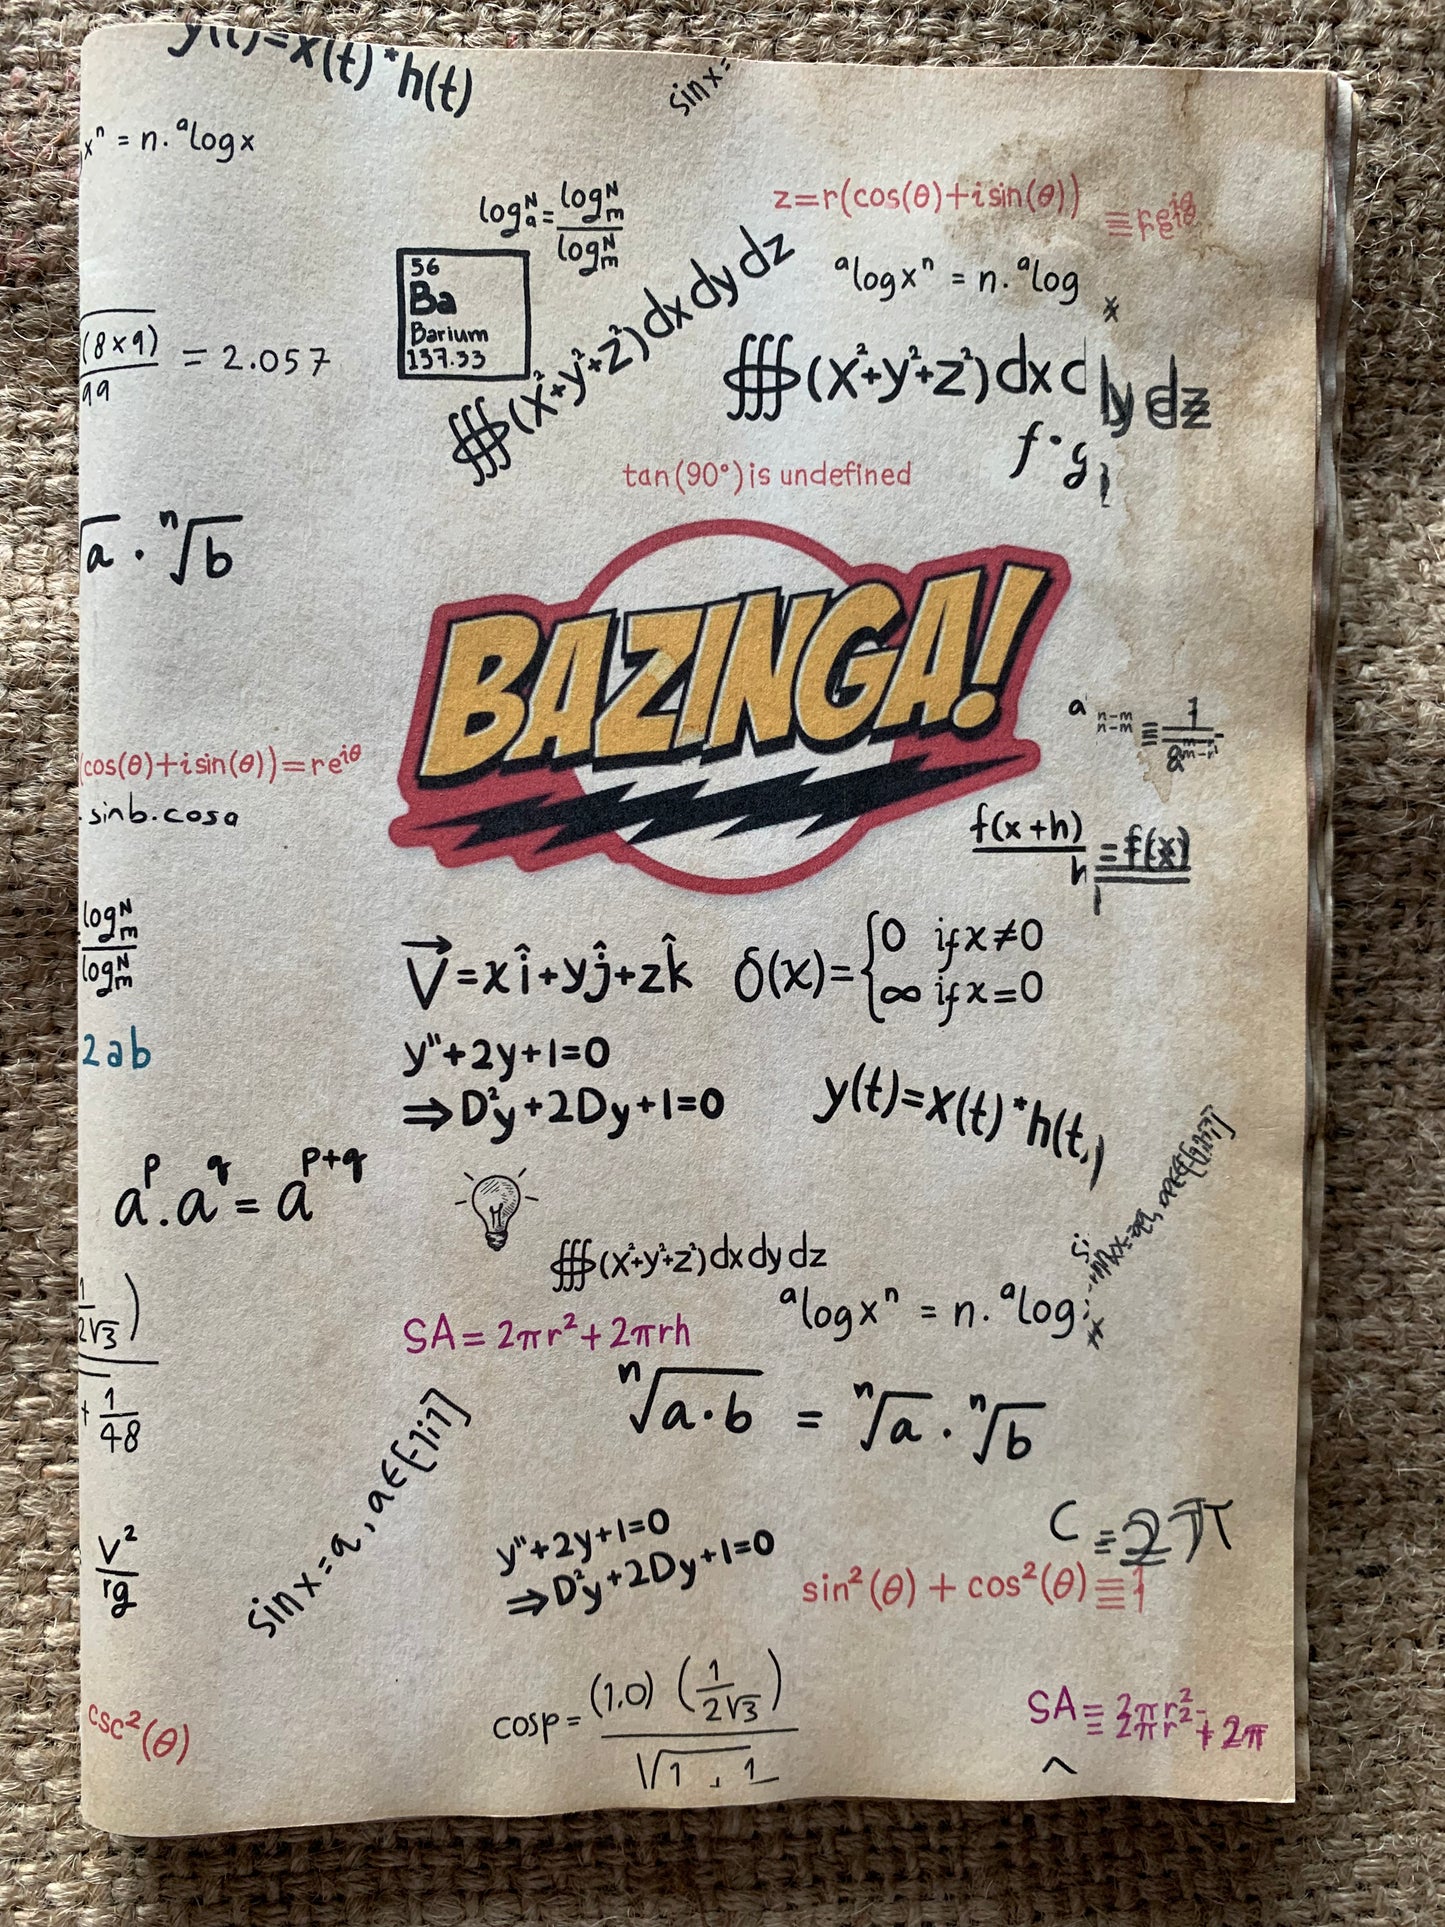 y(t)=x(t)*h(t)
sinx=
xⁿ = n.ᵃlogx
logₐᴺ = logₘᴺ / logₘᴺ
z=r(cos(θ)+isin(θ)) = re^iθ
56
Ba
Barium
137.33
∰(x²+y²+z²)dxdydz
ᵃlogxⁿ = n.ᵃlog x
(8×9) / 99 = 2.057
∰(x²+y²+z²)dxdydz
f·g
tan(90°) is undefined
√a · ⁿ√b
BAZINGA!
a n-m = 1
(cos(θ)+isin(θ))=re^iθ
. sinb.cosa
f(x+h) / h = f(x)
logₘᴺ / logₘᴺ
V⃗=xî+yĵ+zk̂
δ(x)={0 if x≠0
∞ if x=0
2ab
y"+2y+1=0
⇒D²y+2Dy+1=0
y(t)=x(t)*h(t,)
a^p.a^q = a^p+q
∰(x²+y²+z²)dxdydz
ᵃlogxⁿ = n.ᵃlog x
1 / 2√3)
SA=2πr²+2πrh
ⁿ√a·b = ⁿ√a · ⁿ√b
+ 1/48
sinx=a, a∈[-1;1]
y"+2y+1=0
⇒D²y+2Dy+1=0
C=2π
v² / rg
sin²(θ) + cos²(θ) = 1
cosp = (1,0) (1 / 2√3) / √1 + 1
csc²(θ)
SA=2πr²+2π